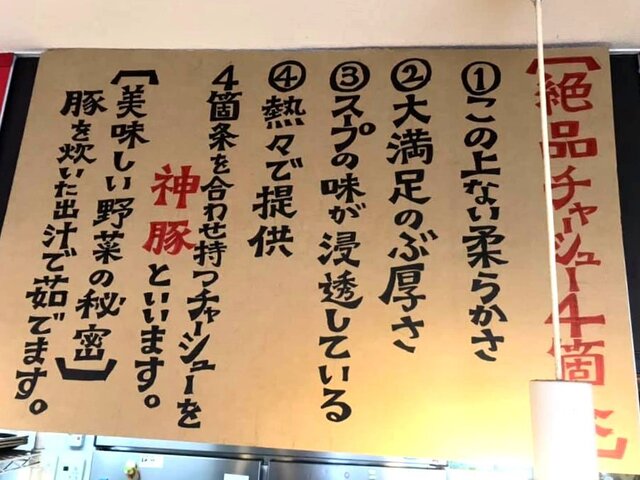 【絶品チャーシュー4箇
①この上ない柔らかさ
②大満足のぶ厚さ
③スープの味が浸透している
④熱々で提供
4箇条を合わせ持つチャーシューを
神豚といいます。
【美味しい野菜の秘密】
豚を炊いた出汁で茹でます。